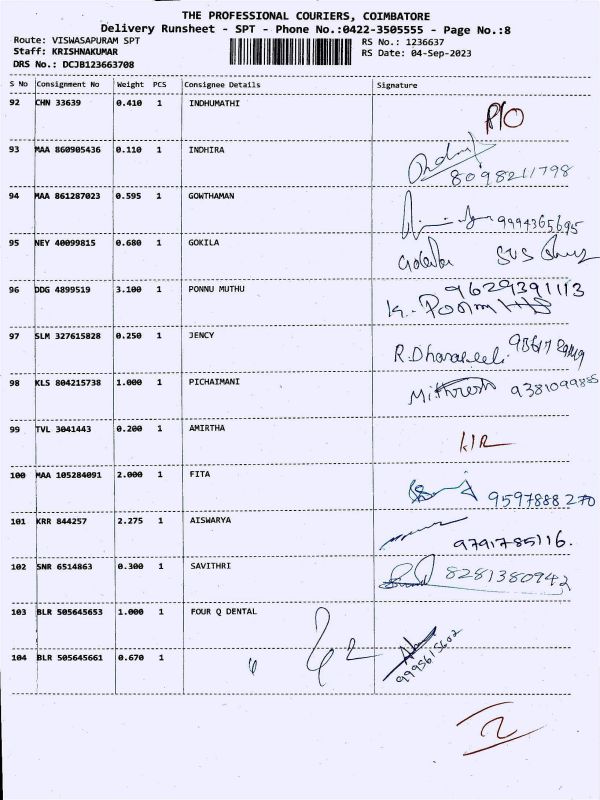 THE PROFESSIONAL COURIERS, COIMBATORE
Delivery Runsheet - SPT - Phone No.:0422-3505555 - Page No.:8
Route: VISWASAPURAM SPT RS No.: 1236637
Staff: KRISHNAKUMAR RS Date: 04-Sep-2023
DRS No.: DCJB123663708
S No Consignment No Weight PCS Consignee Details Signature
92 CHN 33639 0.410 1 INDHUMATHI
P/O
93 MAA 860905436 0.110 1 INDHIRA
8098211798
94 MAA 861287023 0.595 1 GOWTHAMAN
9994365695
95 NEY 40099815 0.680 1 GOKILA
SVS
96 DDG 4899519 3.100 1 PONNU MUTHU 9629391113
97 SLM 327615828 0.250 1 JENCY
98 KLS 804215738 1.000 1 PICHAIMANI
Mithresh 9381099885
99 TVL 3041443 0.200 1 AMIRTHA
100 MAA 105284091 2.000 1 FITA
9597888270
101 KRR 844257 2.275 1 AISWARYA
9791785116.
102 SNR 6514863 0.300 1 SAVITHRI 8281380942
103 BLR 505645653 1.000 1 FOUR Q DENTAL
104 BLR 505645661 0.670 1 9995615602